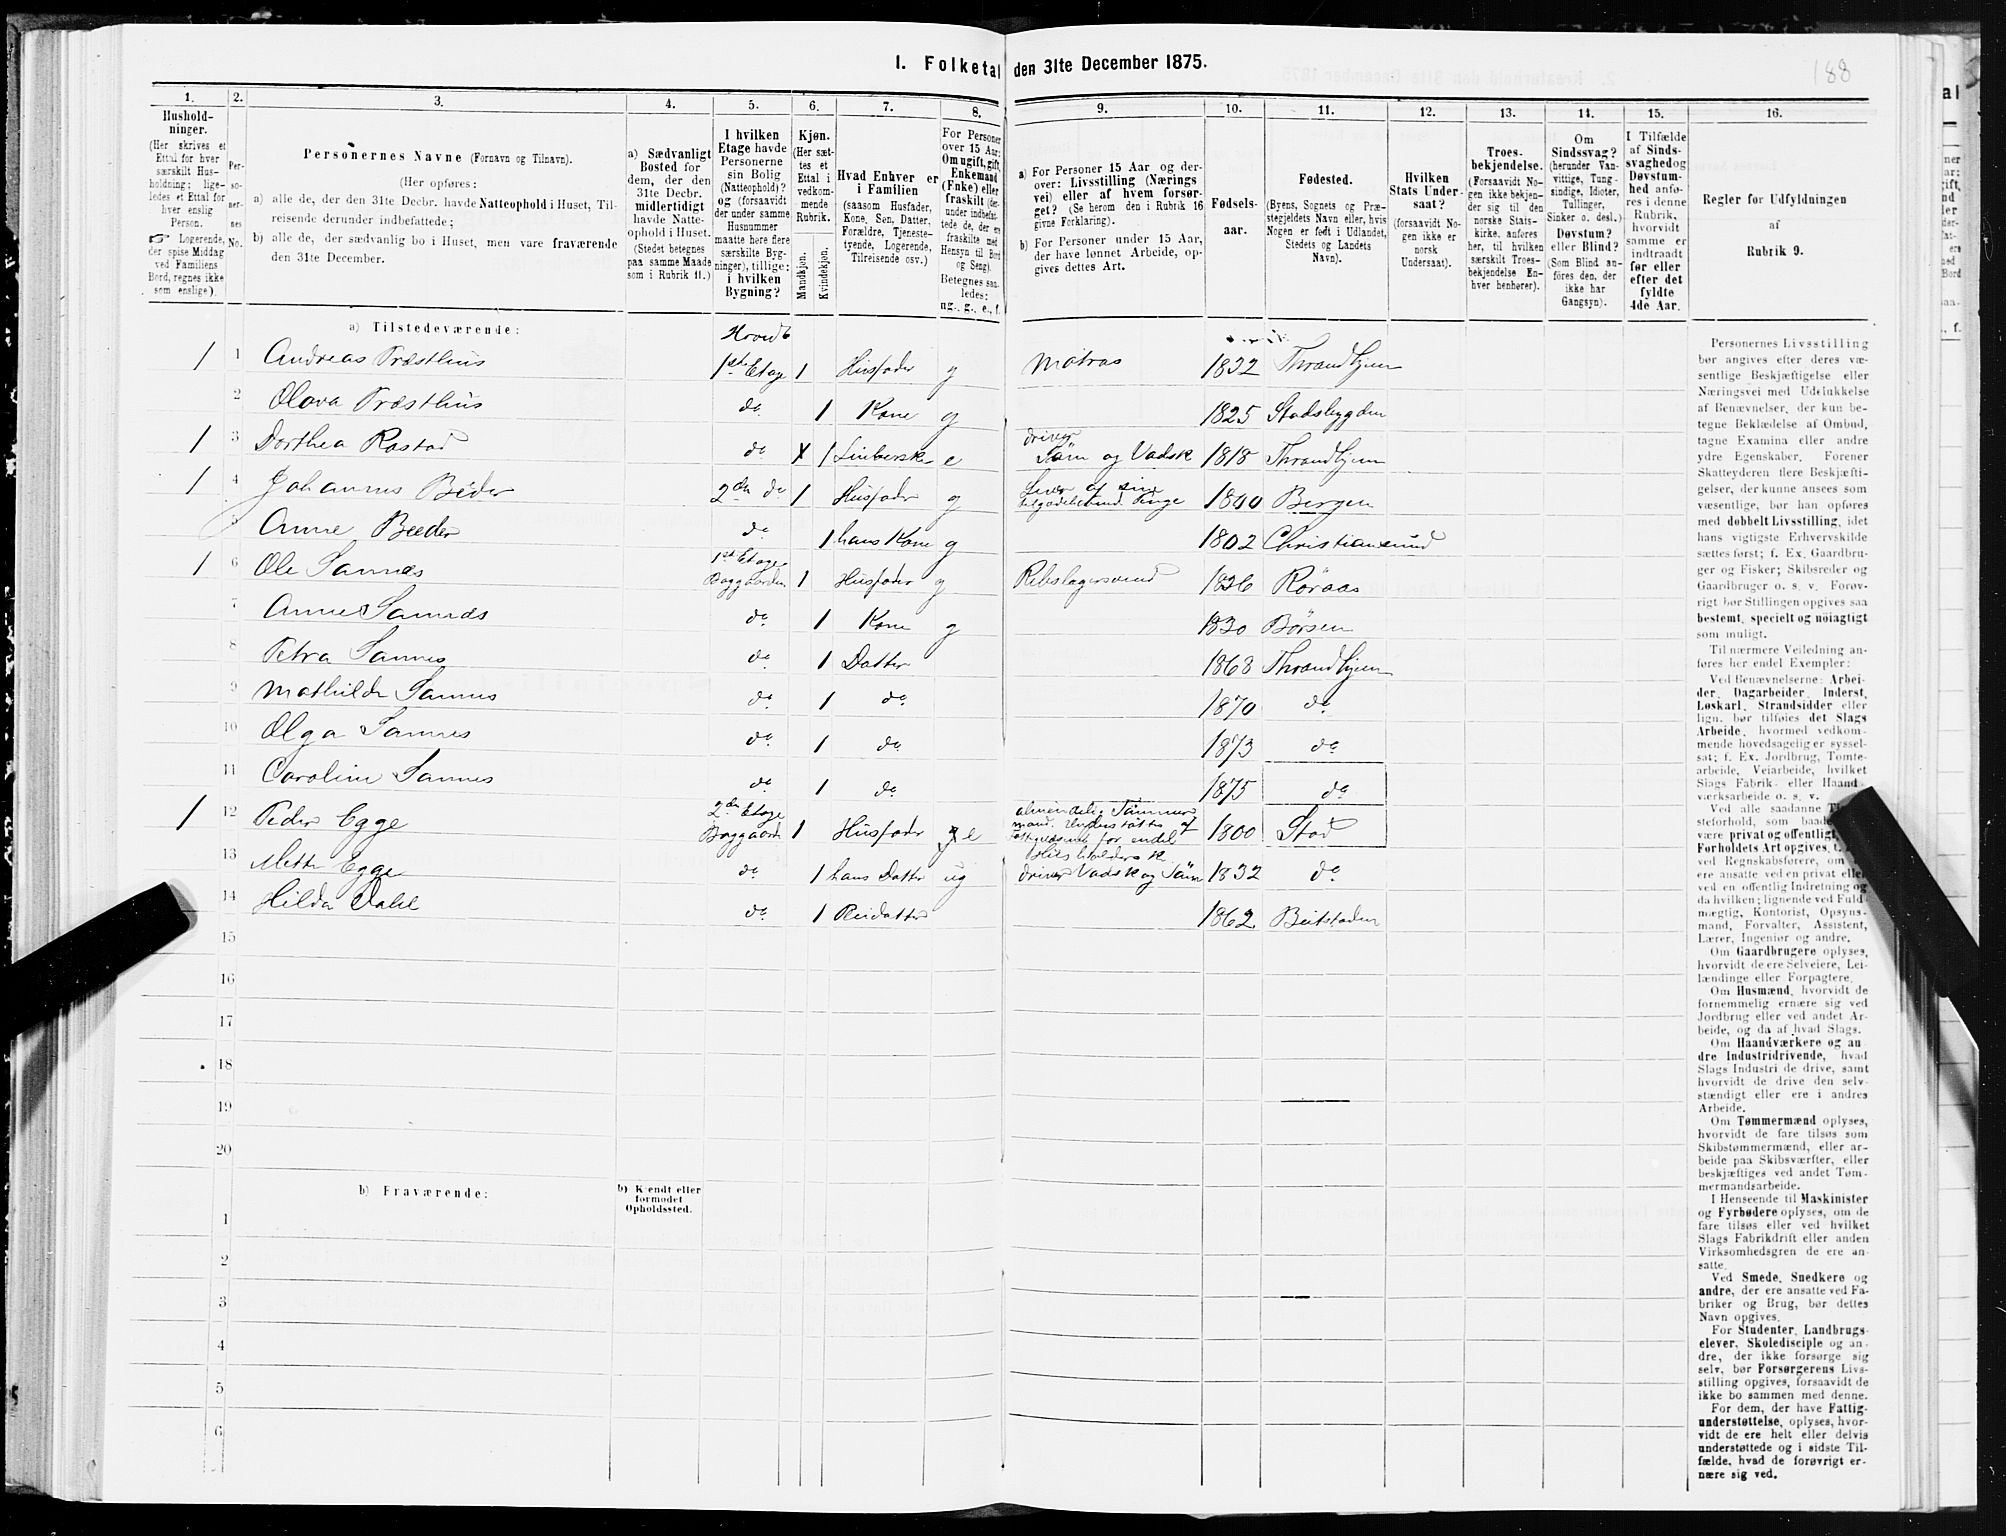 188
1. Folketal den 31te December 1875.
1.
Hushold-
ninger.
(Her skrives et
Ettal for hver
særskilt Hus-
holdning; lige-
ledes et Ettal for
hver enslig
Person.
☞ Logerende,
der spise Middag
ved Familiens
Bord, regnes ikke
som enslige).
2.
Per-
so-
ner-
nes
No.
3.
Personernes Navne (Fornavn og Tilnavn).
(Her opføres:
a) alle de, der den 31te Decbr. havde Natteophold i Huset, Til-
reisende derunder indbefattede;
b) alle de, der sædvanlig bo i Huset, men vare fraværende
den 31te December.
4.
a) Sædvanligt
Bosted for
dem, der den
31te Decbr.
midlertidigt
havde Natte-
ophold i Huset.
(Stedet betegnes
paa samme Maade
som i Rubrik 11.)
5.
I hvilken
Etage havde
Personerne
sin Bolig
(Natteophold)?
og (forsaavidt
der under samme
Husnummer
maatte høre flere
særskilte Byg-
ninger), tillige:
i hvilken
Bygning?
6.
Kjøn.
(Her sæt-
tes et
Ettal i
vedkom-
mende
Rubrik.
Mandkjøn.
Kvindekjøn.
7.
Hvad Enhver er
i Familien
(saasom Husfader,
Kone, Søn, Datter,
Forældre, Tjeneste-
tyende, Logerende,
Tilreisende osv.)
8.
For Personer
over 15 Aar:
Om ugift, gift,
Enkemand
(Enke) eller
fraskilt (der-
under indbefat-
tede de, der ere
fraskilte med
Hensyn til Bord
og Seng).
Betegnes saa-
ledes:
ug., g., e., f.
9.
a) For Personer 15 Aar og der-
over: Livsstilling (Nærings
vei) eller af hvem forsør-
get? (Se herom den i Rubrik 16
givne Forklaring).
b) For Personer under 15 Aar,
der have lønnet Arbeide, op-
gives dettes Art.
10.
Fødsels-
aar.
11.
Fødested.
(Byens, Sognets og Præ-
stegjeldets Navn eller, hvis
Nogen er født i Udlandet,
Stedets og Landets
Navn).
12.
Hvilken
Stats Under-
saat?
(forsaavidt No-
gen ikke er
norsk
Undersaat).
13.
Troes-
bekjendelse.
(Forsaavidt No-
gen ikke bekjen-
der sig til den
norske Stats-
kirke, anføres
her, til hvilken
særskilt Troes-
bekjendelse En-
hver henhører).
14.
Om
Sindssvag?
(herunder Van-
vittige, Tung-
sindige, Idioter,
Tullinger,
Sinker o. desl.)
Døvstum?
eller Blind?
(Som Blind an-
føres den, der
ikke har
Gangsyn).
15.
I Tilfælde
af Sinds-
svaghed og
Døvstum-
hed anfø-
res i denne
Rubrik,
hvorvidt
samme er
indtraadt
før eller
efter det
fyldte
4de Aar.
16.
Regler for Udfyldningen
af
Rubrik 9.
a) Tilstedeværende:
Hovedb
1 1 Andreas Præsthus 1ste Etage 1 Husfader g Matros 1832 Throndhjem
2 Olava Præsthus do 1 Kone g 1825 Stadsbygden
1 3 Dorthea Rostad do 1 e driver Søm og Vadsk 1818 Throndhjem
1 4 Johannes Beder 2den do 1 Husfader g Lever af sine tilgodehavend. Penge 1800 Bergen
5 Anne Beeder do 1 hans Kone g 1802 Christiansund
1 6 Ole Sannes 1st Etage Baggaarden 1 Husfader g Rebslagersvend 1826 Røraas
7 Anne Sannæs do 1 Kone g 1830 Børsen
8 Petra Sannes do 1 Datter 1868 Throndhjem
9 Mathilde Sannes do 1 do 1870 do
10 Olga Sannes do 1 do 1873 do
11 Caroline Sannes do 1 do 1875 do
1 12 Peder Egge 2den Etage Baggaard 1 Husfader e almindelig Tømmermand. Understøttes af for endel 1800 Stod
13 Mette Egge do 1 hans Datter ug Husholderk. driver Vadsk og Søm 1832 do
14 Hilda Dahl do 1 Pleidatter 1862 Beitstaden
15
16
17
18
19
20
b) Fraværende:
b) Kjendt eller
formodet
Opholdssted.
1
2
3
4
5
6
Personernes Livsstilling
bør angives efter deres væ-
sentlige Beskjæftigelse eller
Næringsvei med Udelukkelse
af Benævnelser, der kun be-
tegne Beklædelse af Ombud,
tagne Examina eller andre
ydre Egenskaber. Forener
Skatteyderen flere Beskjæfti-
gelser, der kunne ansees som
væsentlige, bør han opføres
med dobbelt Livsstilling, idet
hans vigtigste Erhvervskilde
sættes først; f. Ex. Gaardbru-
ger og Fisker; Skibsreder og
Gaardbruger o. s. v. Forøv-
rigt bør Stillingen opgives saa
bestemt, specielt og nöiagtigt
som muligt.
Til nærmere Veiledning an-
føres her endel Exempler:
Ved Benævnelserne: Arbei-
der, Dagarbeider, Inderst,
Løskarl, Strandsidder eller
lign. bør tilføies det Slags
Arbeide, hvormed vedkom-
mende hovedsagelig er syssel-
sat; f. Ex. Jordbrug, Tomte-
arbeide, Veiarbeide, hvilket
Slags Fabrik- eller Haand-
værksarbeide o. s. v.
Ved alle saadanne
steforhold, som baade
være privat og offentligt,
Forholdets Art opgives,
ved Regnskabsførere, om
ere ansatte ved en privat eller
ved en offentlig Indretning og
da hvilken; lignende ved Fuld-
mægtig, Kontorist, Opsyns-
mand, Forvalter, Assistent,
Lærer, Ingeniør og andre.
Om Gaardbrugere oplyses,
hvorvidt de ere Selveiere, Lei-
lændinge eller Forpagtere.
Om Husmænd, hvorvidt de
fornemmelig ernære sig ved
Jordbrug eller ved andet Ar-
beide, og da af hvad Slags.
Om Haandværkere og an-
dre Industridrivende, hvad
Slags Industri de drive, samt
hvorvidt de drive den selv-
stændigt eller ere i andres
Arbeide.
Om Tømmermænd oplyses,
hvorvidt de fare tilsøs som
Skibstømmermænd, eller ar-
beide paa Skibsværfter, eller
beskjæftiges ved andet Tøm-
mermandsarbeide.
I Henseende til Maskinister
og Fyrbødere oplyses, om de
fare tilsøs eller ved hvilket
Slags Fabrikdrift eller anden
Virksomhedsgren de ere an-
satte.
Ved Smede, Snedkere og
andre, der ere ansatte ved Fa-
briker og Brug, bør dettes
Navn opgives.
For Studenter, Landbrugs-
elever, Skoledisciple og an-
dre, der ikke forsørge sig
selv, bør Forsørgerens Livs-
stilling opgives, forsaavidt de
ikke bo sammen med denne.
For dem, der have Fattig-
understøttelse, oplyses, hvor-
vidt de ere helt eller delvis
understøttede og i sidste Til-
fælde, hvad de forøvrigt er-
nære sig ved.